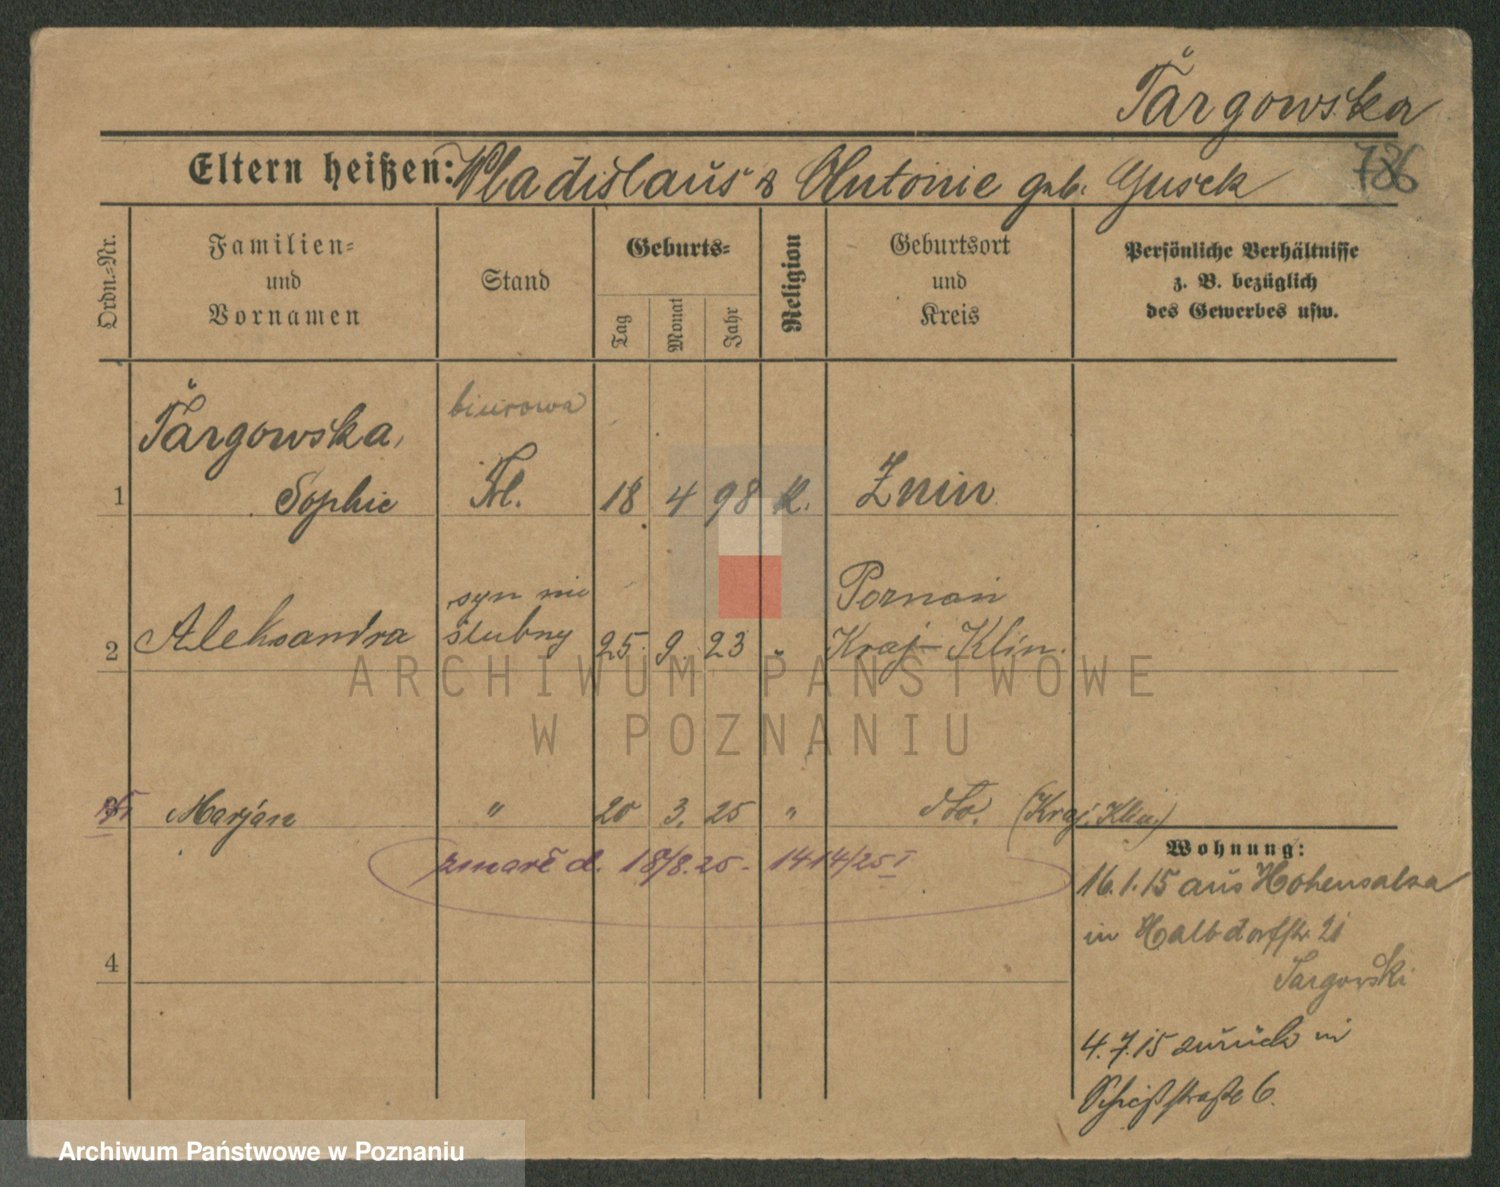 Targowska
Eltern heißen: Wladislaus & Antonie geb. Gusek
786
Ordn.-Nr.
Familien-
und
Vornamen
Stand
Geburts-
Tag
Monat
Jahr
Religion
Geburtsort
und
Kreis
Persönliche Verhältnisse
z. B. bezüglich
des Gewerbes usw.
biurowa
Targowska,
1 Sophie Frl. 18 4 98 K. Znin
syn nie Poznań
2 Aleksandra ślubny 25. 9. 23 „ Kraj-Klin.
Marjan " 20 3. 25 " dto. (Kraj. Klin.)
zmarł d. 18/8.25 - 1414/25 I
Wohnung:
16.1.15 aus Hohensalza
in Halbdorfstr 21
Targowski
4
4.7.15 zurück in
Schießstraße 6.
ARCHIWUM PAŃSTWOWE
W POZNANIU
Archiwum Państwowe w Poznaniu